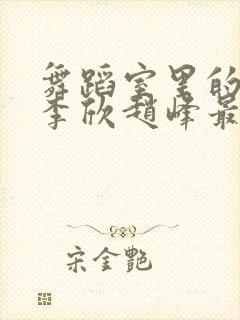 舞蹈室里的
李欣赵峰最
宋金艷